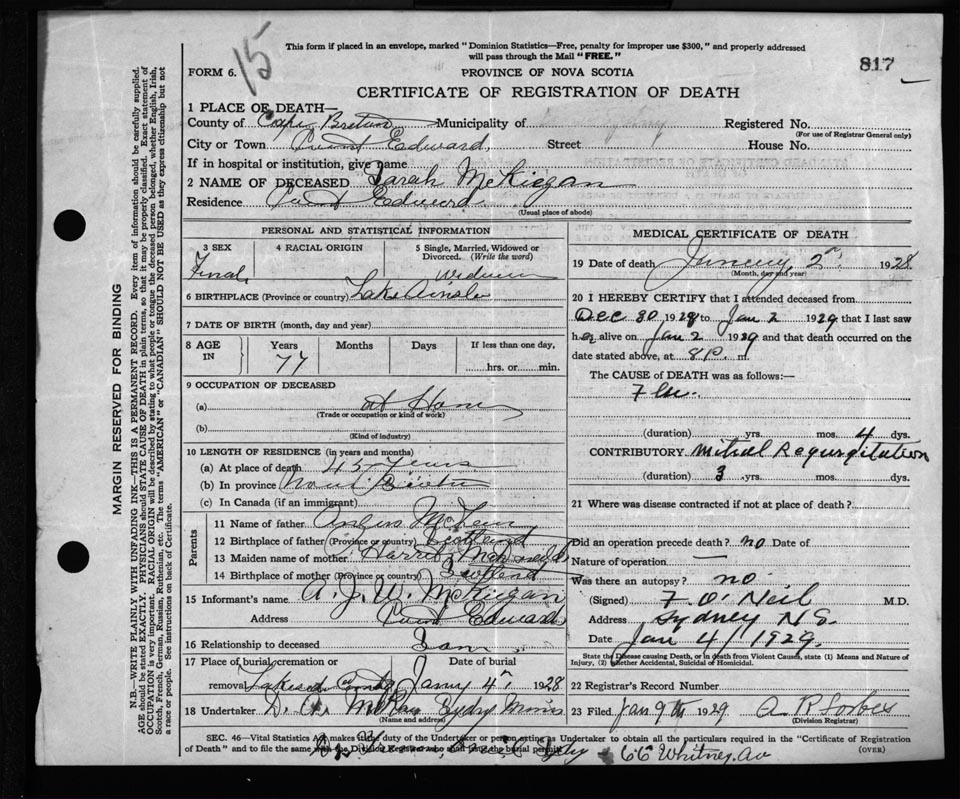 15
This form if placed in an envelope, marked "Dominion Statistics—Free, penalty for improper use $300," and properly addressed
will pass through the Mail "FREE."
817
FORM 6.
PROVINCE OF NOVA SCOTIA
CERTIFICATE OF REGISTRATION OF DEATH
1 PLACE OF DEATH—
County of Cape Breton Municipality of Registered No.
(For use of Registrar General only)
City or Town Point Edward, Street House No.
If in hospital or institution, give name
2 NAME OF DECEASED Sarah McKiegan
Residence Point Edward
(Usual place of abode)
PERSONAL AND STATISTICAL INFORMATION
3 SEX 4 RACIAL ORIGIN 5 Single, Married, Widowed or Divorced. (Write the word)
Widow
6 BIRTHPLACE (Province or country) Lake Ainslie
7 DATE OF BIRTH (month, day and year)
8 AGE IN Years Months Days If less than one day,
77 hrs. or min.
9 OCCUPATION OF DECEASED
(a) at Home
(Trade or occupation or kind of work)
(b)
(Kind of industry)
10 LENGTH OF RESIDENCE (in years and months)
(a) At place of death 45 Years
(b) In province
(c) In Canada (if an immigrant)
Parents
11 Name of father Angus
12 Birthplace of father (Province or country) Scotland
13 Maiden name of mother Harriet McDonald
14 Birthplace of mother (Province or country) Scotland
15 Informant's name A. J. W. McKiegan
Address Point Edward
16 Relationship to deceased Son
17 Place of burial, cremation or Date of burial
removal Jany 4th 1928
18 Undertaker D. A. Sydney Mines
(Name and address)
MEDICAL CERTIFICATE OF DEATH
19 Date of death January 2nd 1928
(Month, day and year)
20 I HEREBY CERTIFY that I attended deceased from
Dec 30 1928 to Jan 2 1929 that I last saw
her alive on Jan 2 1929 and that death occurred on the
date stated above, at 8 P. m
The CAUSE of DEATH was as follows:—
Flu.
(duration) yrs. mos. 4 dys.
CONTRIBUTORY. Mitral Regurgitation
(duration) 3 yrs. mos. dys.
21 Where was disease contracted if not at place of death?
Did an operation precede death? no Date of
Nature of operation —
Was there an autopsy? no
(Signed) F. O'Neil M.D.
Address Sydney N.S.
Date Jan 4/1929.
State the Disease causing Death, or in death from Violent Causes, state (1) Means and Nature of
Injury, (2) Whether Accidental, Suicidal or Homicidal.
22 Registrar's Record Number
23 Filed Jan 9th 1929 A R Forbes
(Division Registrar)
SEC. 46—Vital Statistics Act, makes it the duty of the Undertaker or person acting as Undertaker to obtain all the particulars required in the "Certificate of Registration
of Death" and to file the same with the Division Registrar who shall issue the burial permit.
(OVER)
66 Whitney Av
MARGIN RESERVED FOR BINDING
N.B.—WRITE PLAINLY WITH UNFADING INK—THIS IS A PERMANENT RECORD. Every item of information should be carefully supplied.
AGE should be stated EXACTLY. PHYSICIANS should STATE CAUSE OF DEATH in plain terms, so that it may be properly classified. Exact statement of
OCCUPATION is very important. RACIAL ORIGIN will be described by stating to what people or tongue the deceased person belonged, whether English, Irish,
Scotch, French, German, Russian, Ruthenian, etc. The terms "AMERICAN" or "CANADIAN" SHOULD NOT BE USED as they express citizenship but not
a race or people. See instructions on back of Certificate.